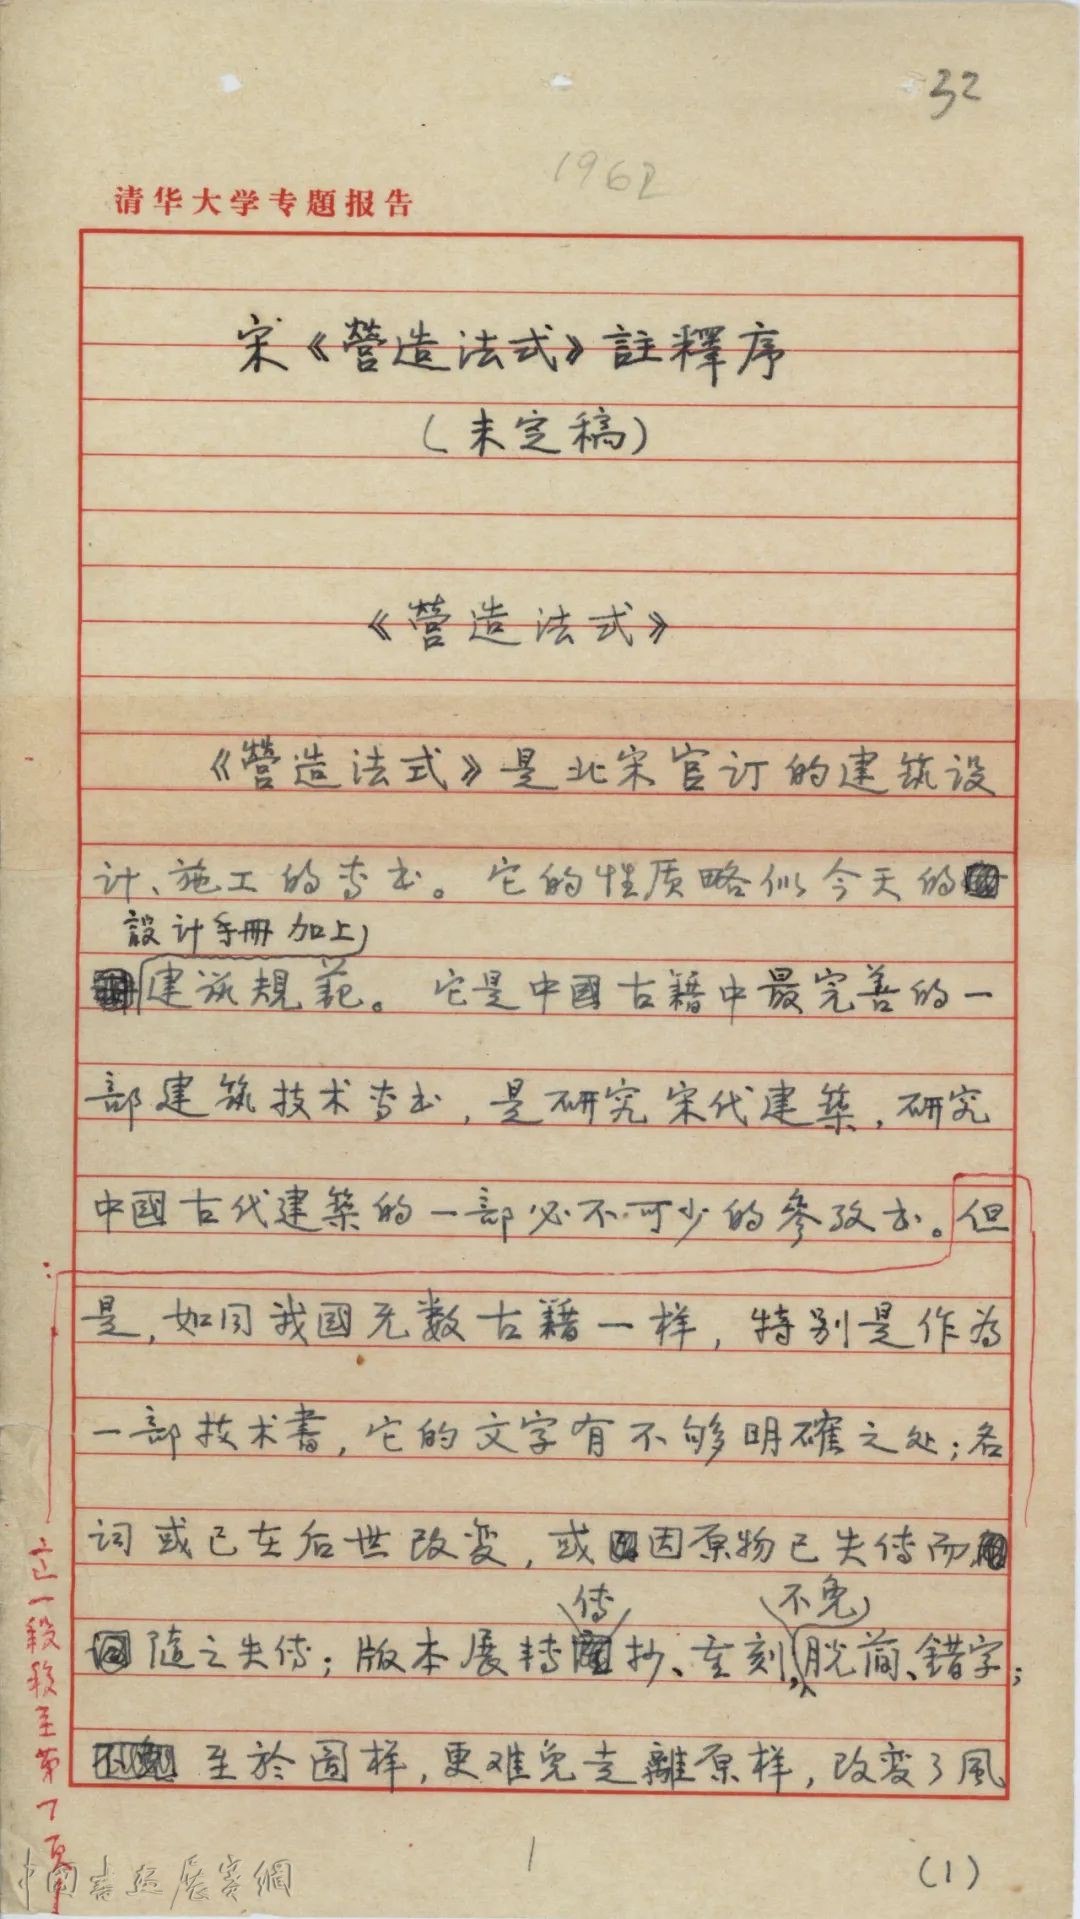 32
1962
清华大学专题报告
宋《營造法式》註釋序
(未定稿)
《營造法式》
《營造法式》是北宋官订的建筑设
计、施工的专书。它的性质略似今天的
設计手冊加上
建筑規范。它是中國古籍中最完善的一
部建筑技术专书,是研究宋代建築,研究
中國古代建築的一部必不可少的參攷书。但
是,如同我國无数古籍一样,特别是作为
一部技术書,它的文字有不够明確之处;名
词或已在后世改变,或因原物已失传而
传
不免
隨之失传;版本展转抄、重刻,脱简、错字;
至於圖样,更难免走離原样,改变了風
这一段移至第7页
1
(1)
中國書法展賽網